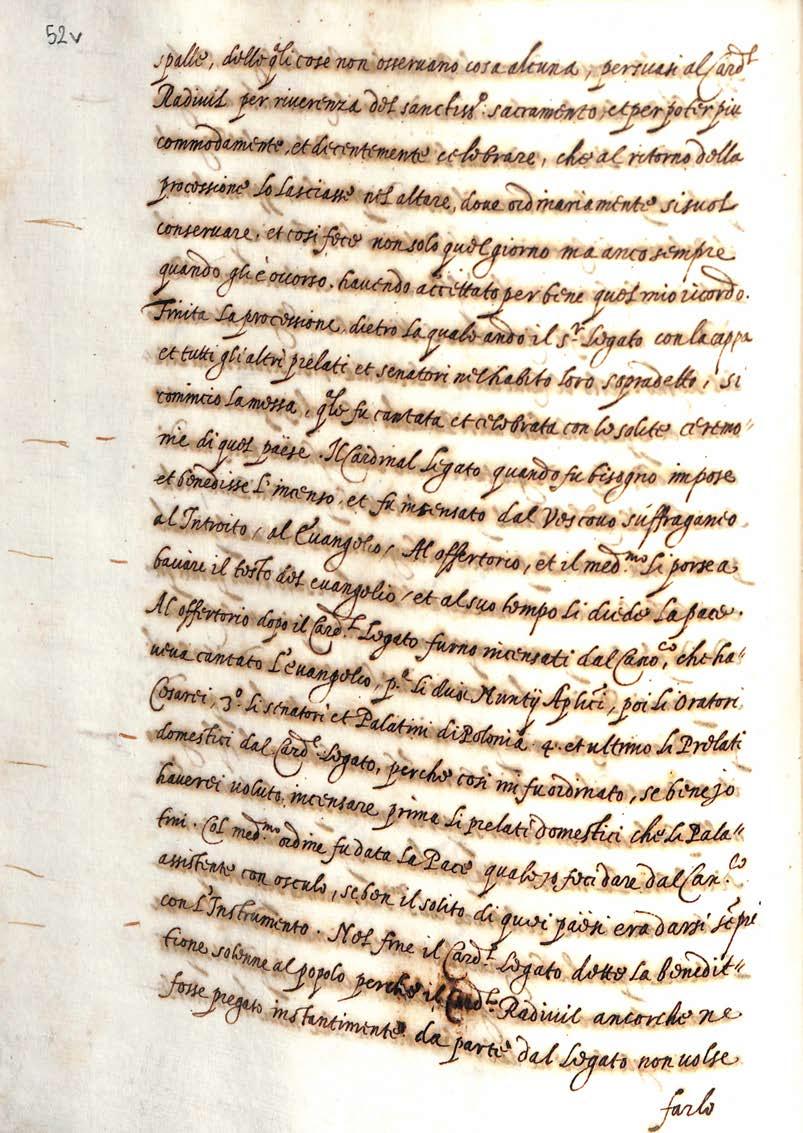 52v
spalle, delle q̃li cose non osservano cosa alcuna, persuasi al Card.l
Radivil per riverenza del sanctiss.o sacramento, et per poter piu
commodamente, et decentemente celebrare, che al ritorno della
processione lo lasciasse nel altare, dove ordinariamente si suol
conservare, et cosi fece non solo quel giorno ma anco sempre
quando gli è occorso, havendo accettato per bene quel mio ricordo.
Finita la processione, dietro la quale andò il s.r Legato con la cappa
et tutti gli altri prelati et senatori nel habito loro sopradetto, si
comincio la messa, q̃le fu cantata et celebrata con le solite ceremo"
nie di quel paese. Il Cardinal Legato quando fu bisogno impose
et benedisse l'incenso, et fu incensato dal Vescovo suffraganeo
al Introito, al Evangelio, Al offertorio, et il med.mo li porse a
baciare il testo del evangelio, et al suo tempo li diede la pace.
Al offertorio dopo il Card.l Legato furno incensati dal Cano.co, che ha"
veva cantato l'evangelio, p.o li duoi Nuntij Aplici, poi li Oratori
Cesarei, 3.o li senatori et Palatini di Polonia, 4. et ultimo li Prelati
domestici dal Card.l Legato, perche cosi mi fu ordinato, se bene jo
haverei voluto incensare prima li prelati domestici che li Pala"
tini. Col med.mo ordine fu data la Pace quale jo feci dare dal Can.co
assistente con osculo, se ben il solito di quei paesi era darsi sẽpre
con l'Instrumento. Nel fine il Card.l Legato dette la benedit"
tione solenne al popolo perche il Card.l Radivil ancorche ne
fosse pregato instantimente da parte dal Legato non volse
farlo